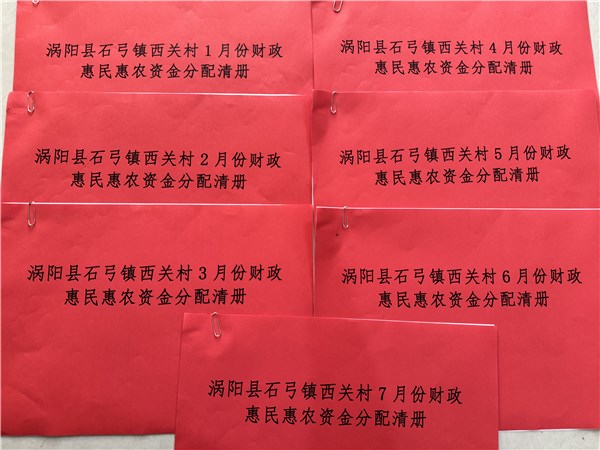 涡阳县石弓镇西关村1月份财政
惠民惠农资金分配清册
涡阳县石弓镇西关村4月份财政
惠民惠农资金分配清册
涡阳县石弓镇西关村2月份财政
惠民惠农资金分配清册
涡阳县石弓镇西关村5月份财政
惠民惠农资金分配清册
涡阳县石弓镇西关村3月份财政
惠民惠农资金分配清册
涡阳县石弓镇西关村6月份财政
惠民惠农资金分配清册
涡阳县石弓镇西关村7月份财政
惠民惠农资金分配清册